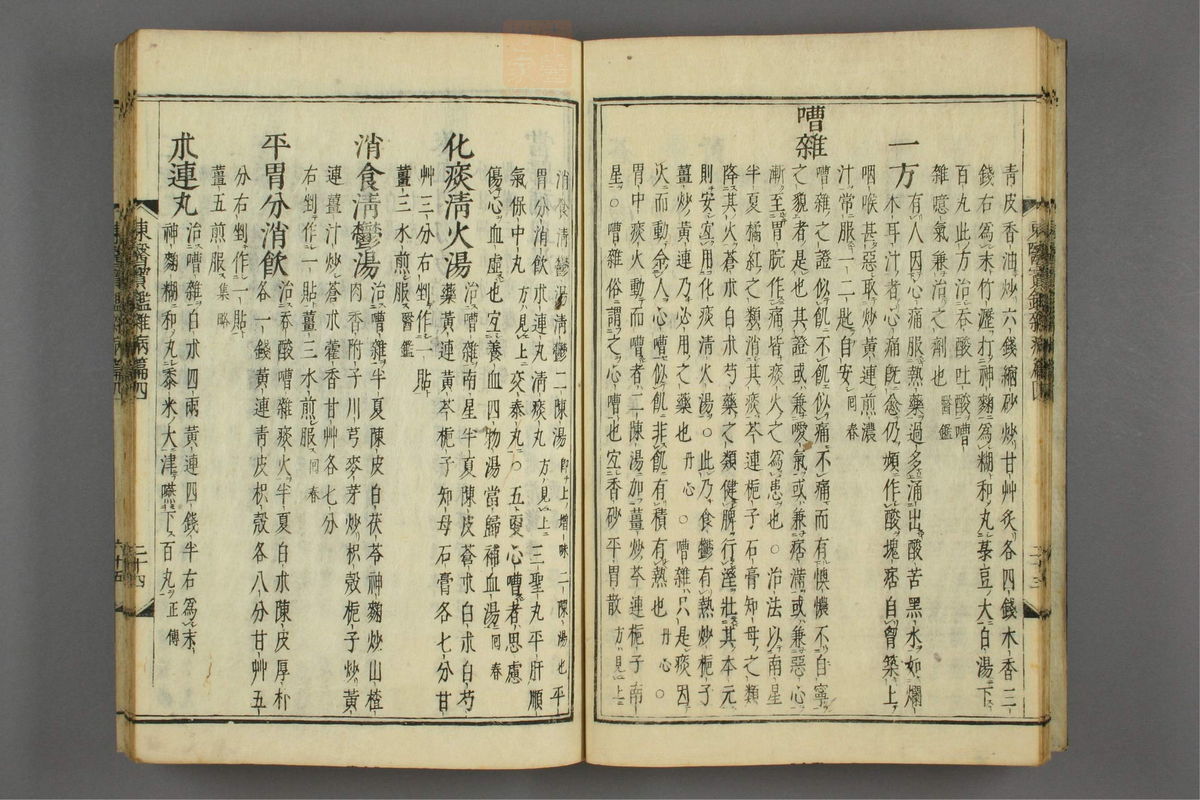 青皮香油炒六錢縮砂炒甘艸炙各四錢木香三
錢右爲末竹瀝打神麴爲糊和丸菉豆大白湯下
百丸此方治吞酸吐酸嘈
雜噫氣兼治之劑也醫鑑
一方有人因心痛服熱藥過多涌出酸苦黑水如爛
木耳汁者心痛既愈仍頻作酸塊痞自胷築上
咽喉甚惡取炒黃連煎濃
汁常服一二匙自安囘春
嘈雜
嘈雜之證似飢不飢似痛不痛而有懊憹不自寧
之貌者是也其證或兼噯氣或兼痞滿或兼惡心
漸至胃脘作痛皆痰火之爲患也○治法以南星
半夏橘紅之類消其痰芩連梔子石膏知母之類
降其火蒼朮白朮芍藥之類健脾行溼壯其本元
則安宜用化痰淸火湯○此乃食鬱有熱炒梔子
薑炒黃連乃必用之藥也丹心○嘈雜只是痰因
火而動余人心嘈似飢非飢有積有熱也丹心○
胃中痰火動而嘈者二陳湯加薑炒芩連梔子南
星○嘈雜俗謂之心嘈也宜香砂平胃散方見上
消食淸鬱湯淸鬱二陳湯卽上增味二陳湯也平
胃分消飮朮連丸淸痰丸方見上三聖丸平肝順
氣保中丸方見上交泰丸○五更心嘈者思慮
傷心血虛也宜養血四物湯當歸補血湯囘春
化痰淸火湯治嘈雜南星半夏陳皮蒼朮白朮白芍
藥黃連黃芩梔子知母石膏各七分甘
艸三分右剉作一貼
薑三水煎服醫鑑
消食淸鬱湯治嘈雜半夏陳皮白茯苓神麴炒山楂
肉香附子川芎麥芽炒枳殼梔子炒黃
連薑汁炒蒼朮藿香甘艸各七分
右剉作一貼薑三水煎服囘春
平胃分消飮治吞酸嘈雜痰火半夏白朮陳皮厚朴
各一錢黃連靑皮枳殼各八分甘艸五
分右剉作一貼
薑五煎服集略
朮連丸治嘈雜白朮四兩黃連四錢半右爲末
神麴糊和丸黍米大津嚥下百丸正傳
東醫寶鑑雜病篇四
二十四